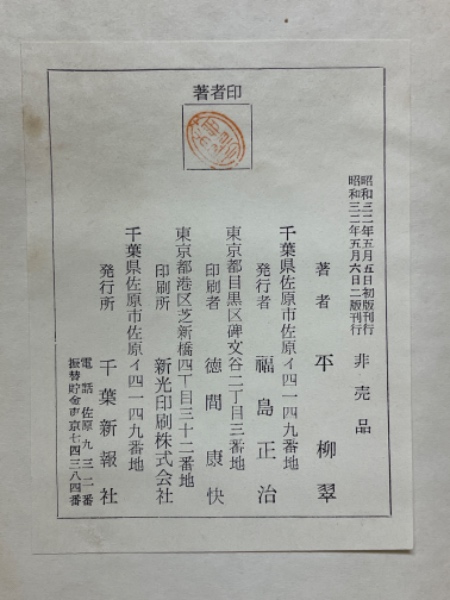 著者印
昭和三二年五月五日初版刊行
昭和三二年五月六日二版刊行
非売品
著者 平柳翠
千葉県佐原市佐原イ四一四九番地
発行者 福島正治
東京都目黒区碑文谷二丁目三番地
印刷者 徳間康快
東京都港区芝新橋四丁目三十二番地
印刷所 新光印刷株式会社
千葉県佐原市佐原イ四一四九番地
発行所 千葉新報社
電話佐原九三二番
振替貯金東京七四三八四番